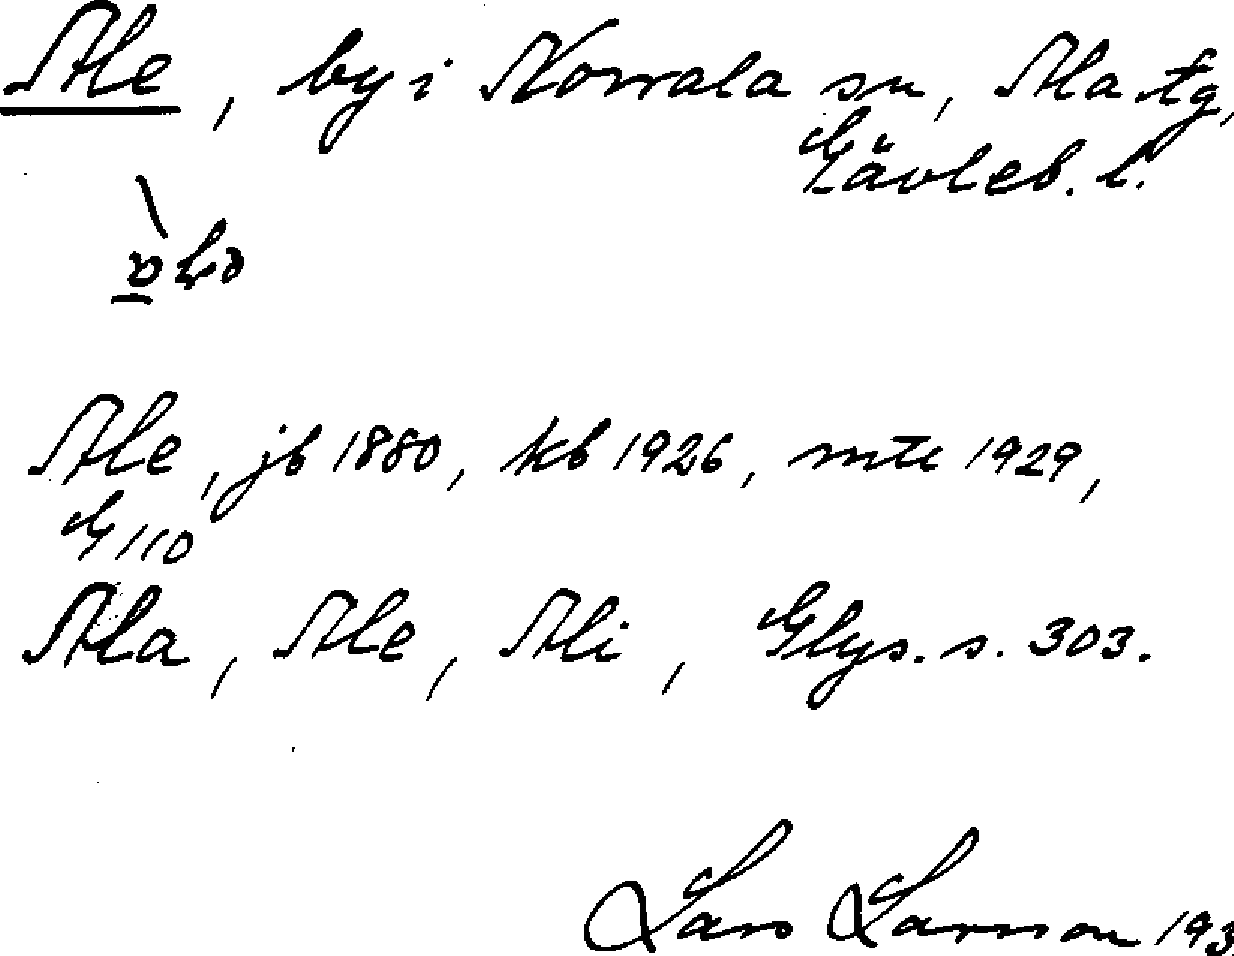 Ale, by i Norrala sn, Ala tg,
Gävleb. l.
Ale, jb 1880, kb 1926, mtl 1929,
G 110
Ala, Ale, Ali, Glys. s. 303.
Lars Larsson 193